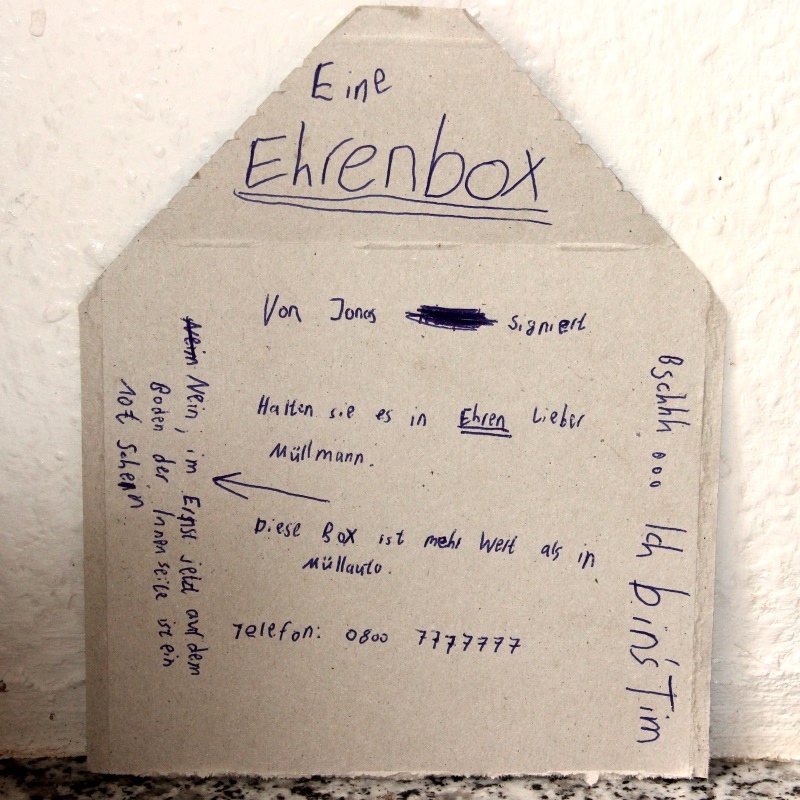 Eine
Ehrenbox
Von Jonas signiert
Halten sie es in Ehren Lieber
Müllmann.
Diese Box ist mehr Wert als in
Müllauto.
Telefon: 0800 7777777
Nein Nein, im Ernst jetzt auf dem
Boden der Innenseite ist ein
10€ Schein.
Bschhh ... Ich bins Tim